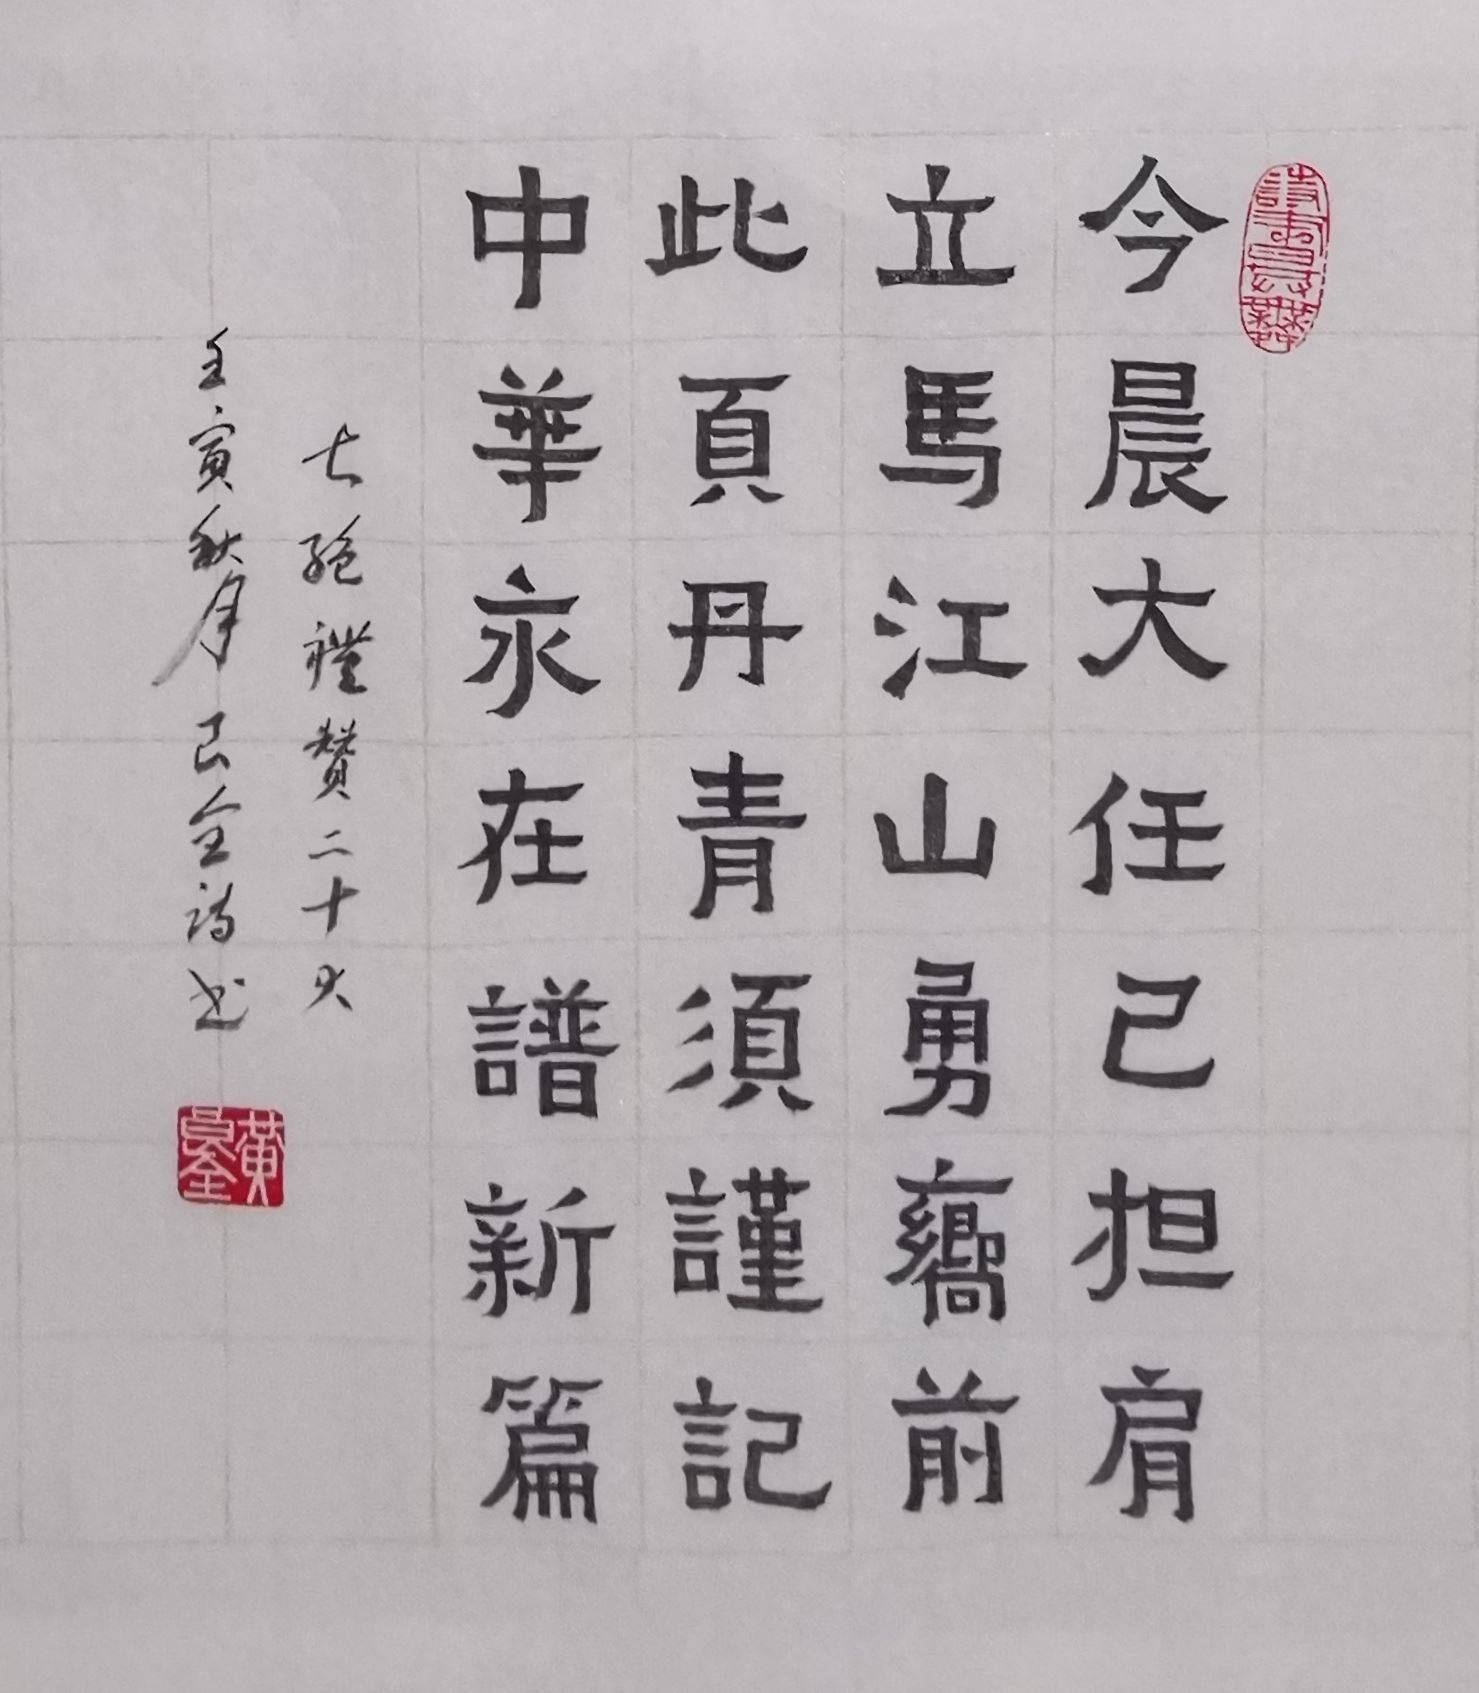 今晨大任已担肩
立馬江山勇嚮前
此頁丹青須謹記
中華永在譜新篇
七绝禮赞二十大
壬寅秋月昱全诗书
黄昱全